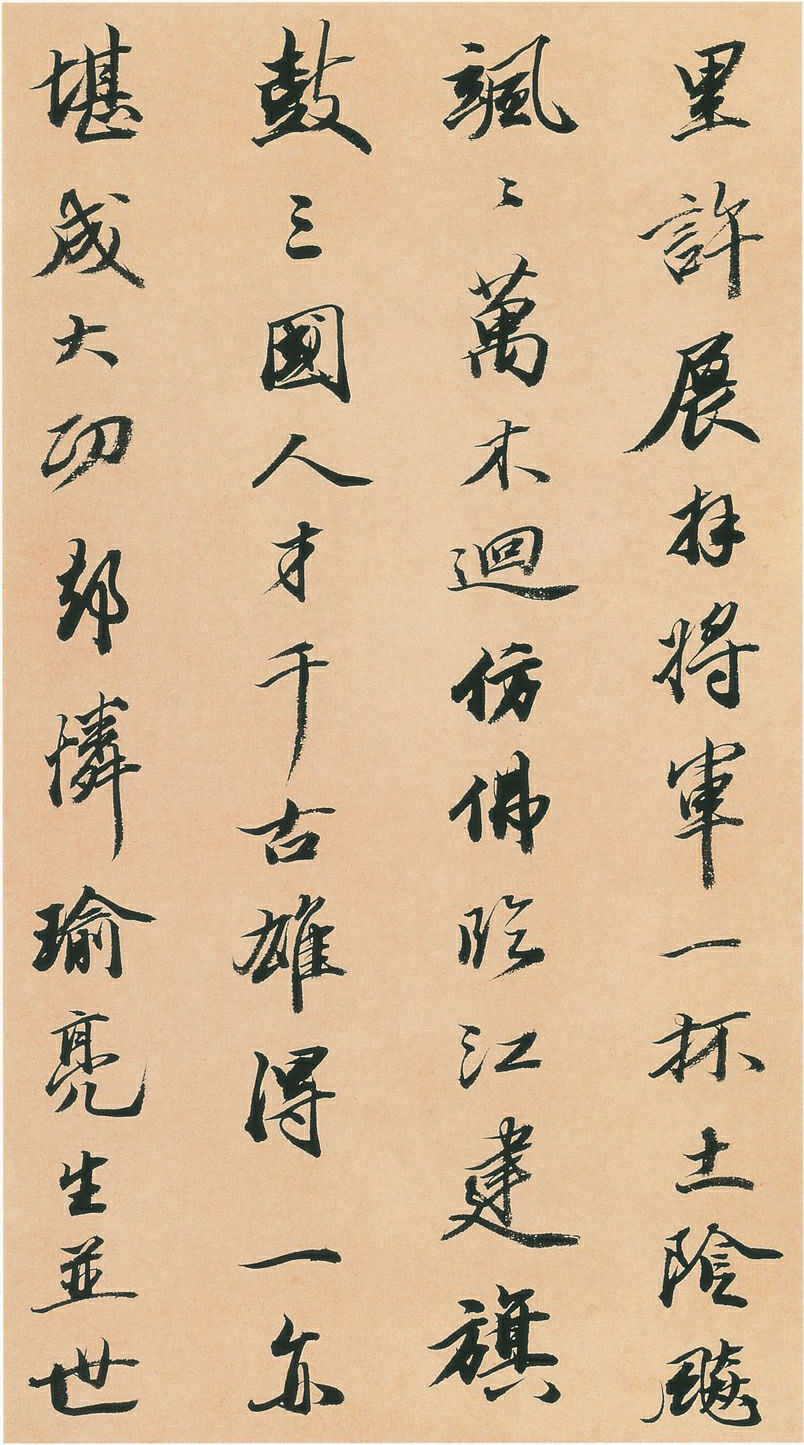 里許展拜將軍一抔土陰飈
颯〻萬木迴仿佛臨江建旗
鼓三國人才千古雄得一亦
堪成大功却憐瑜亮生並世